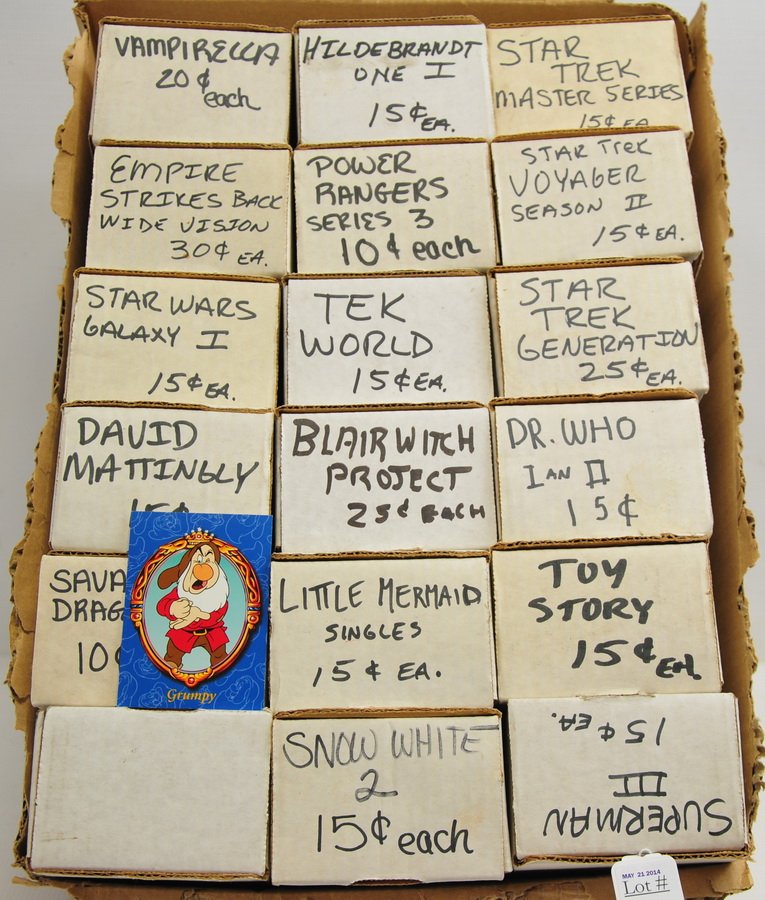 VAMPIRELLA
20¢
each
HILDEBRANDT
ONE I
15¢ EA.
STAR
TREK
MASTER SERIES
15¢ EA
EMPIRE
STRIKES BACK
WIDE VISION
30¢ EA.
POWER
RANGERS
SERIES 3
10¢ each
STAR TREK
VOYAGER
SEASON II
15¢ EA.
STAR WARS
GALAXY I
15¢ EA.
TEK
WORLD
15¢ EA.
STAR
TREK
GENERATION
25¢ EA.
DAVID
MATTINGLY
15¢
BLAIR WITCH
PROJECT
25¢ EACH
DR. WHO
I AN II
15¢
SAVA
DRAG
10¢
Grumpy
LITTLE MERMAID
SINGLES
15¢ EA.
TOY
STORY
15¢ EA.
SNOW WHITE
2
15¢ each
SUPERMAN
III
15¢ EA.
MAY 21 2014
Lot #